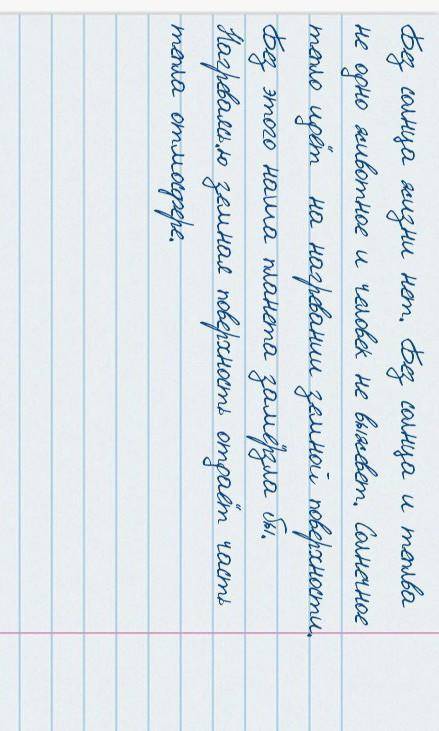 Без солнца жизни нет. Без солнца и теплва
не одно животное и человек не выжевет. Солнечное
тепло идёт на нагревании земной поверхности.
Без этого наша планета замёрзла бы.
Нагреваясь, земная поверхность отдаёт часть
тепла отмосфере.